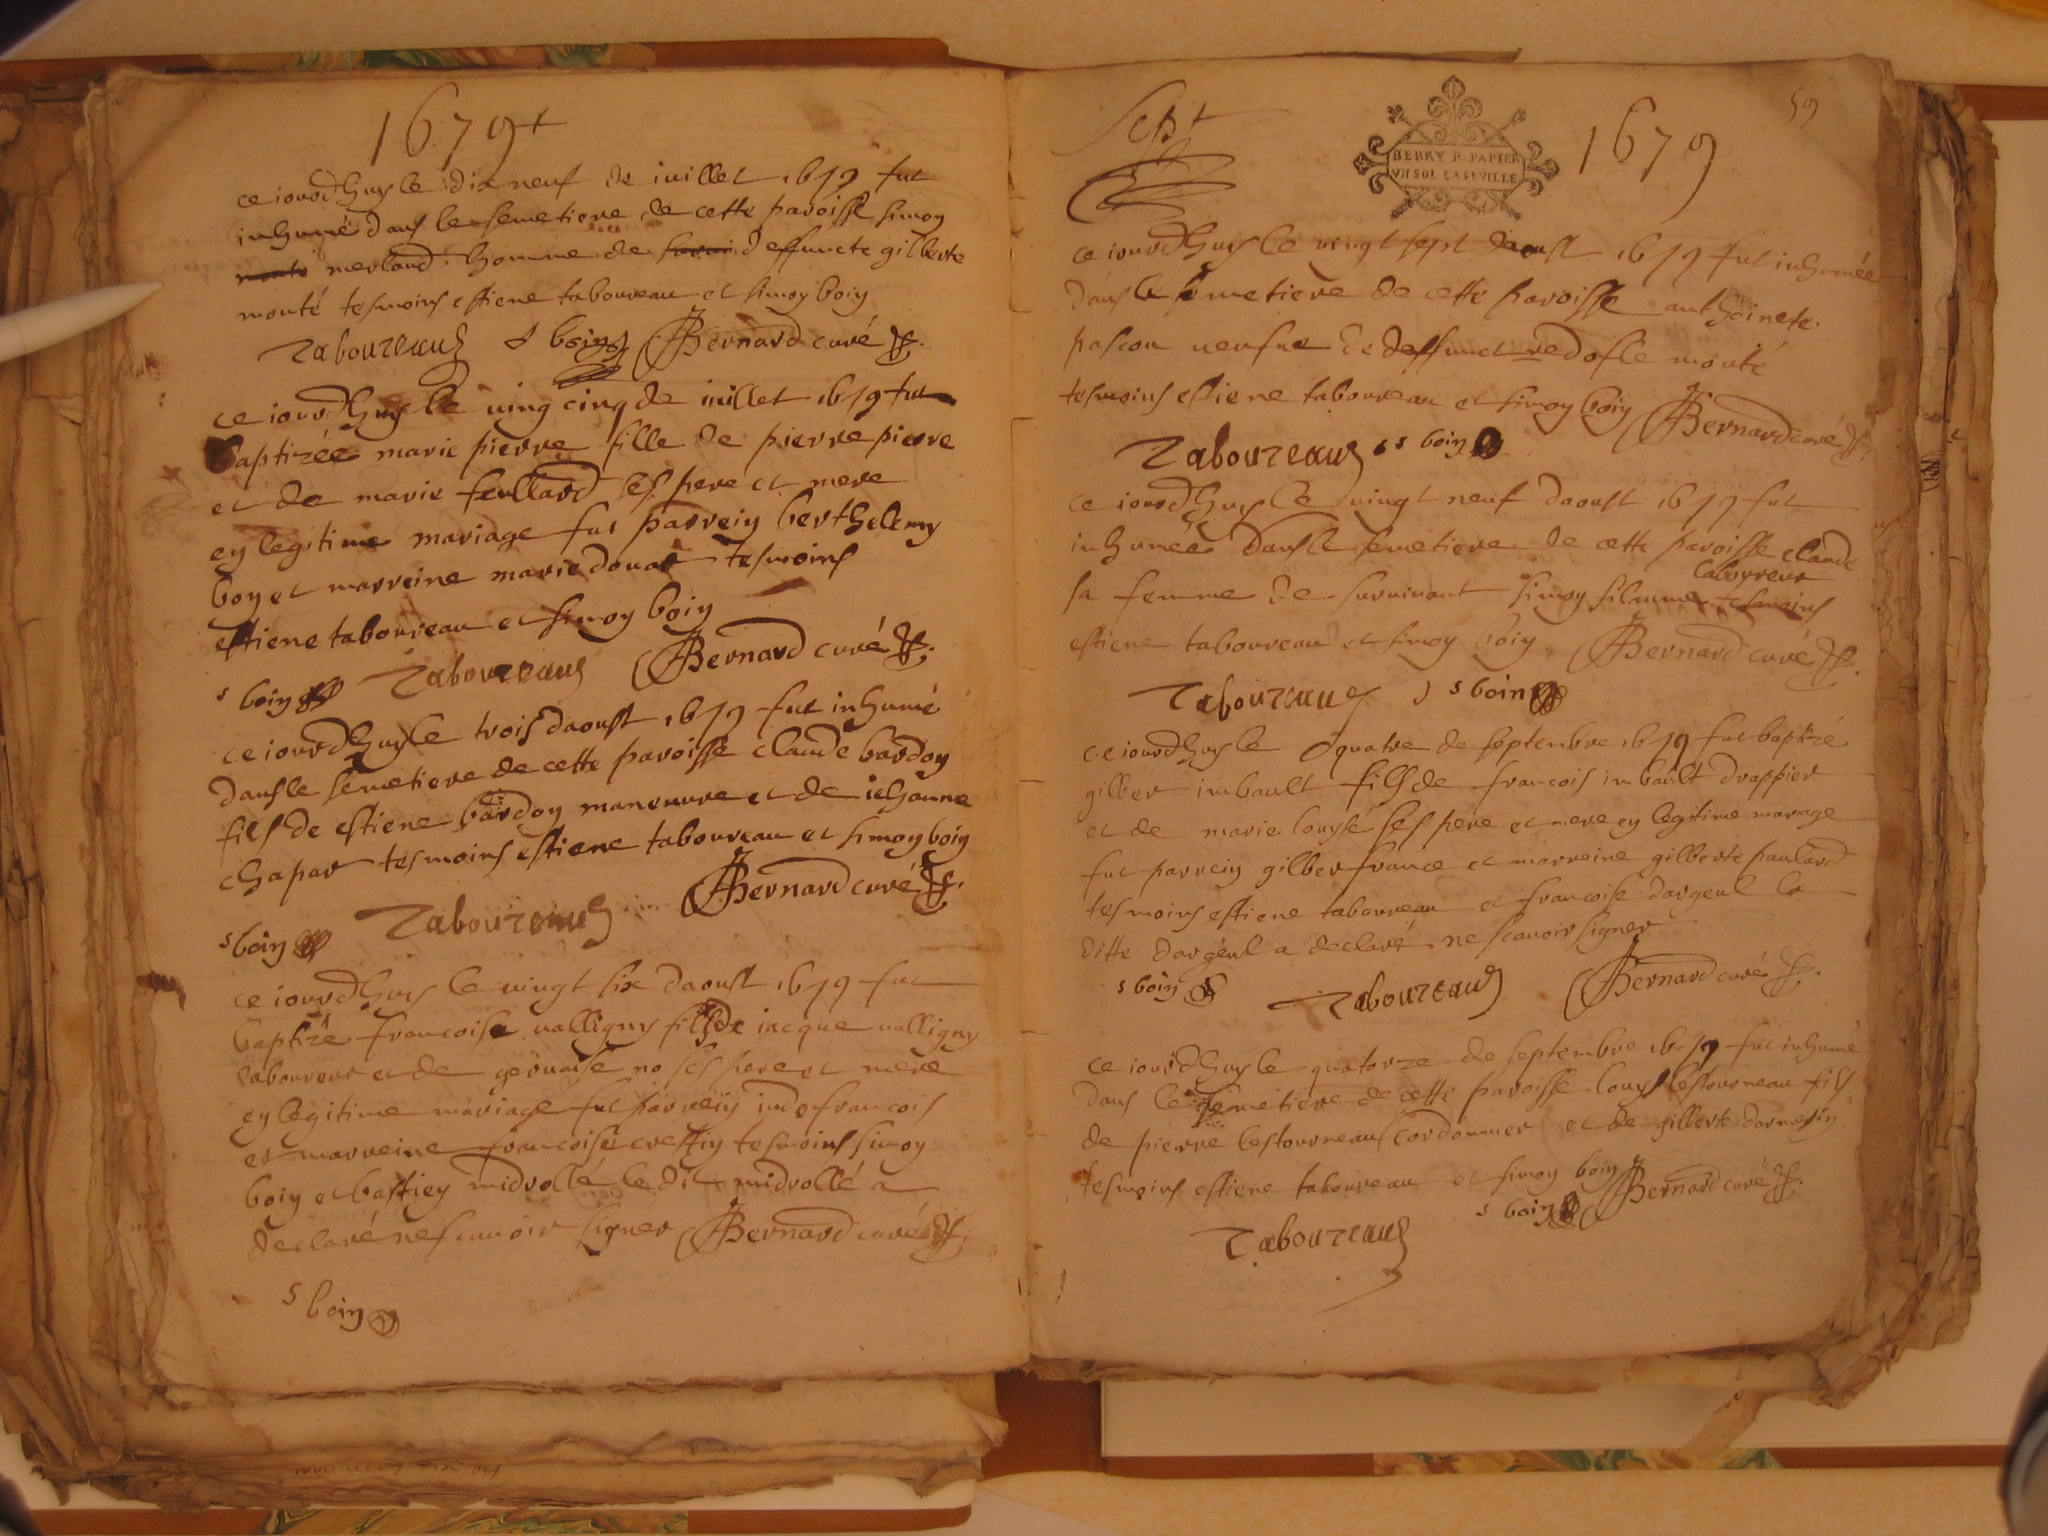 1679
ce iourdhuy le dix neuf de iuillet 1679 fut
inhumé dans le semetiere de cette paroisse simon
merland homme de deffuncte gilberte
monté tesmoins estiene taboureau et simon boin
Taboureau s boin Bernard curé
ce iourdhuy le uing cinq de iuillet 1679 fut
baptizée marie pierre fille de pierre pierre
et de marie feullard ses pere et mere
en legitime mariage fut parrein berthelemy
boy et marreine marie douar tesmoins
estiene taboureau et simon boin
s boin Taboureau Bernard curé
ce iourdhuy le trois daoust 1679 fut inhumé
dans le semetiere de cette paroisse claude bardon
fils de estiene bardon maneuure et de iehanne
chapar tesmoins estiene taboureau et simon boin
s boin Taboureau Bernard curé
ce iourdhuy le uingt six daoust 1679 fut
baptizé francoise ualligny de iacque ualligny
laboureur et de geruaise no ses pere et mere
en legitime mariage fut parrein francois
et marreine francoise creffin tesmoins simon
boin et bastien midrollé le dit midrollé a
declaré ne scauoir signer Bernard curé
s boin
Sept 1679 59
BERRY P. PAPIER
VII SOL LA FEVILLE
ce iourdhuy le uingt sept daoust 1679 fut inhumée
dans le semetiere de cette paroisse anthoinete
pascou ueufue de deffunct monté
tesmoins estiene taboureau et simon boin Bernard curé
Taboureau s boin
ce iourdhuy le uingt neuf daoust 1679 fut
inhumee dans le semetiere de cette paroisse claude
laboureur
sa femme de suruiuant simon tesmoins
estiene taboureau et simon boin Bernard curé
Taboureau s boin
ce iourdhuy le quatre de septembre 1679 fut baptizé
gilber imbault fils de francois imbault drappier
et de marie louysé ses pere et mere en legitime mariage
fut parrein gilber france et marreine gilberte paulard
tesmoins estiene taboureau et francoise dargeul la
ditte dargeul a declaré ne scauoir signer
s boin Taboureau Bernard curé
ce iourdhuy le quatorze de septembre 1679 fut inhumé
dans le semetiere de cette paroisse louys lestourneau fils
de pierre lestourneau cordonnier et de gilberte darnesin
tesmoins estiene taboureau et simon boin
s boin Bernard curé
Taboureau